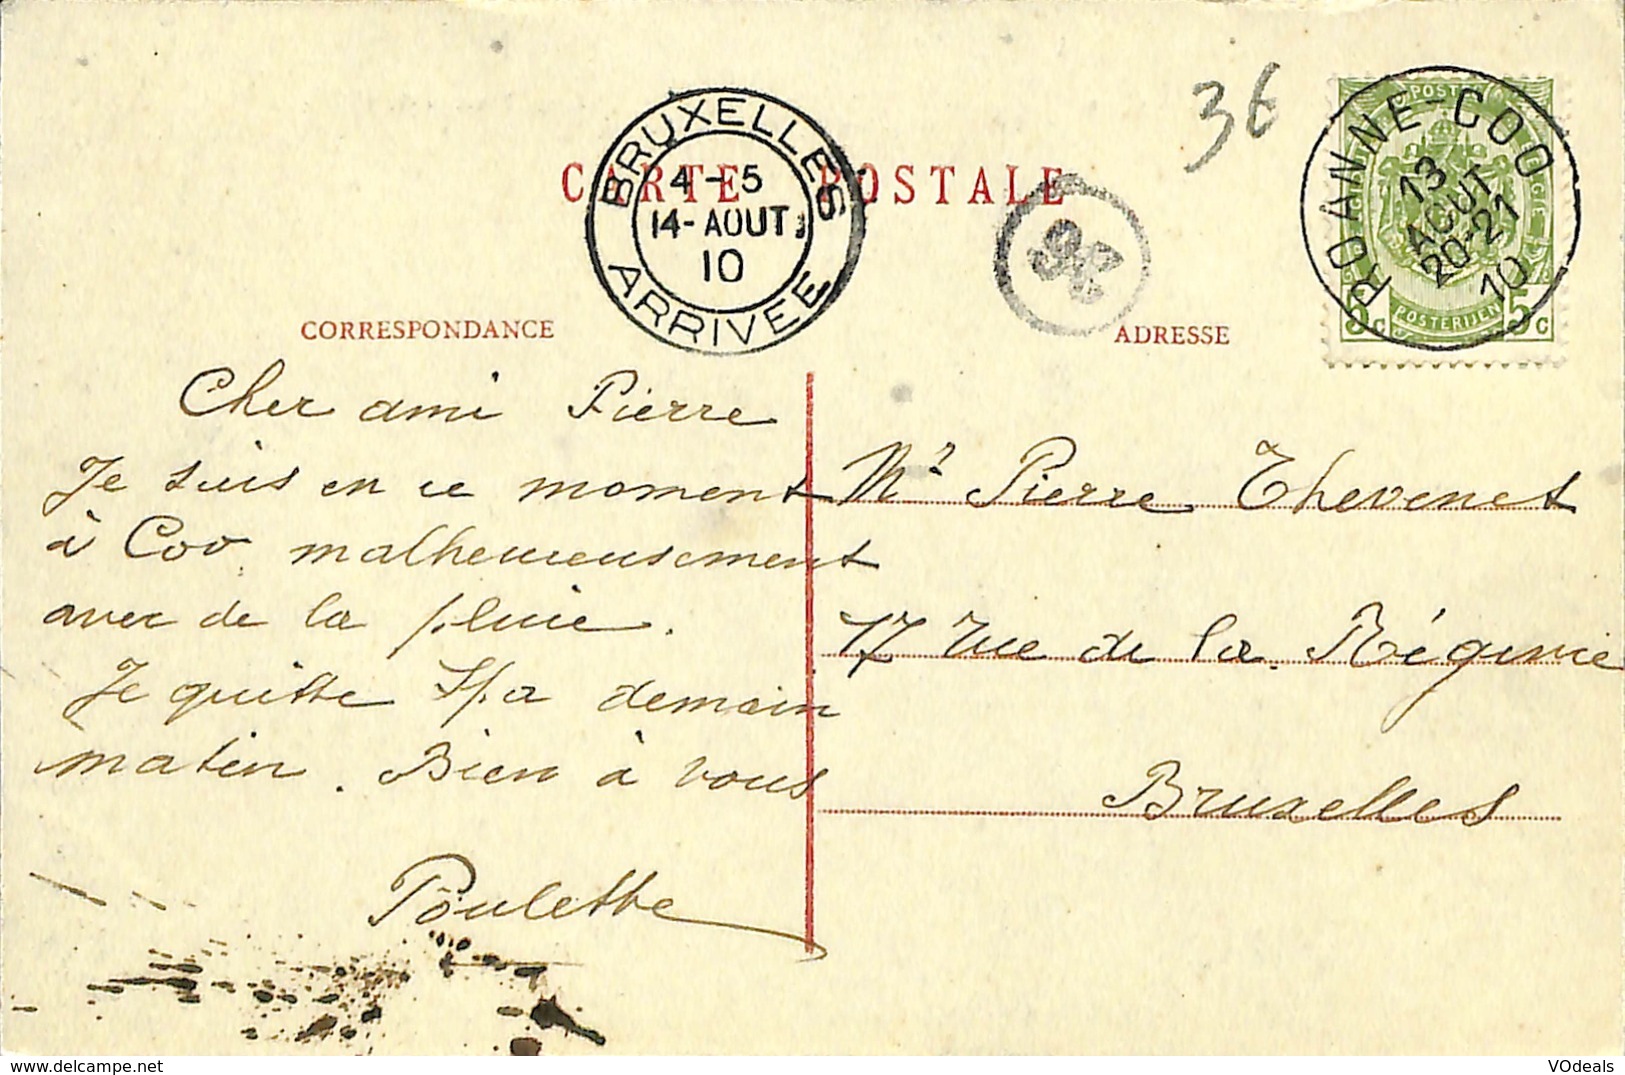 3€
BRUXELLES
4-5
14-AOUT
10
ARRIVEE
CARTE POSTALE
36
ROANNE-COO
13
AOUT
20-21
10
POSTERIJEN
5c 5c
CORRESPONDANCE
ADRESSE
Cher ami Pierre
Je suis en ce moment
à Coo, malheureusement
avec de la pluie.
Je quitte Spa demain
matin. Bien à vous
Poulette
Mr Pierre Thevenet
17 rue de la Régence
Bruxelles
VOdeals
www.delcampe.net